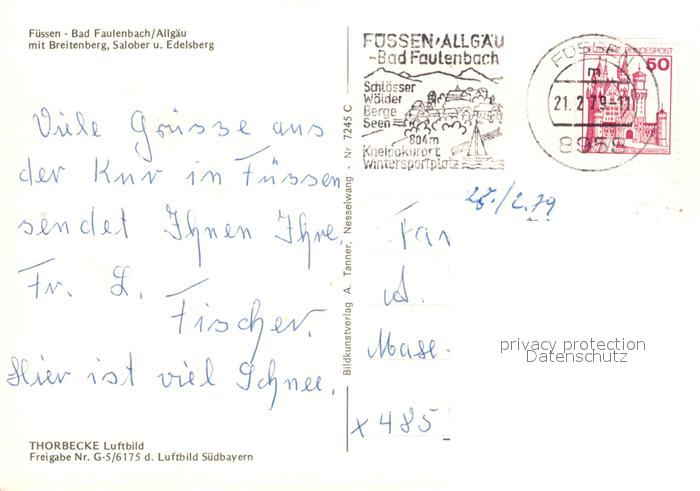 Füssen - Bad Faulenbach/Allgäu
mit Breitenberg, Salober u. Edelsberg
Viele Grüsse aus
der Kur in Füssen
sendet Ihnen Ihre
Fr. L.
Fischer.
Hier ist viel Schnee.
THORBECKE Luftbild
Freigabe Nr. G-5/6175 d. Luftbild Südbayern
Bildkunstverlag A. Tanner, Nesselwang - Nr. 7245 C
FÜSSEN/ALLGÄU
-Bad Faulenbach
Schlösser
Wälder
Berge
Seen
804m
Kneippkurort
Wintersportplatz
FÜSSEN
21. 2.79-11
8958
DEUTSCHE BUNDESPOST
50
/2.79
Fam
d.
Mase
x 485
privacy protection
Datenschutz